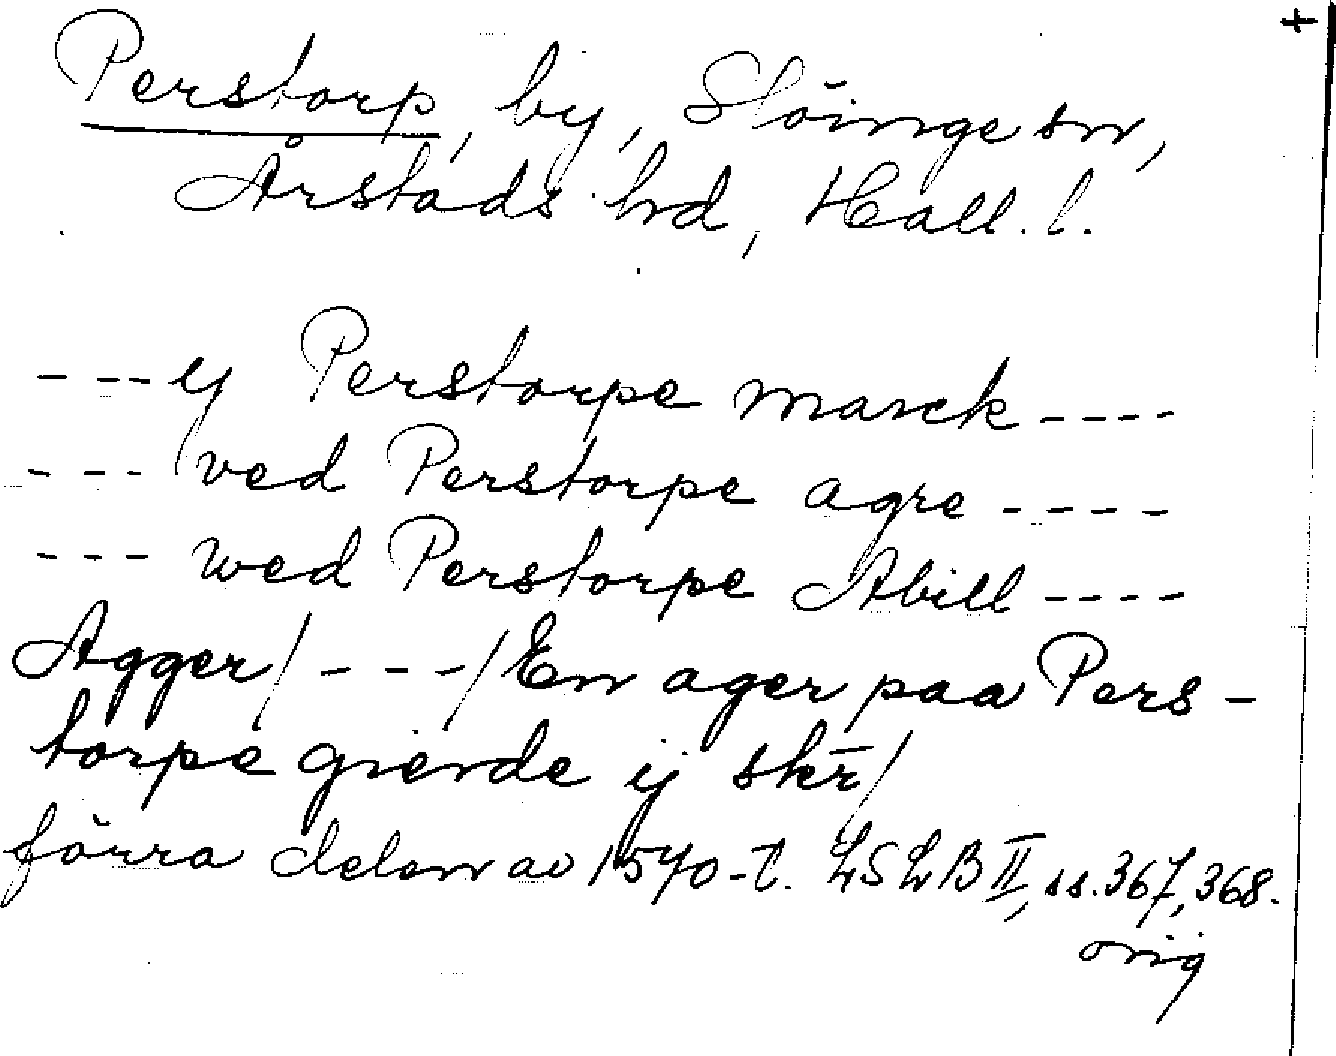 +
Perstorp, by, Slöinge sn,
Årstads hd, Hall. l.
- - - ij Perstorpe marck - - - -
- - - ved Perstorpe agre - - - -
- - - wed Perstorpe Abill - - - -
Agger/ - - - -/ En ager paa Pers-
torpe gierde ij skr̄/
förra delen av 1570-t. LSLB II, ss. 367, 368.
orig